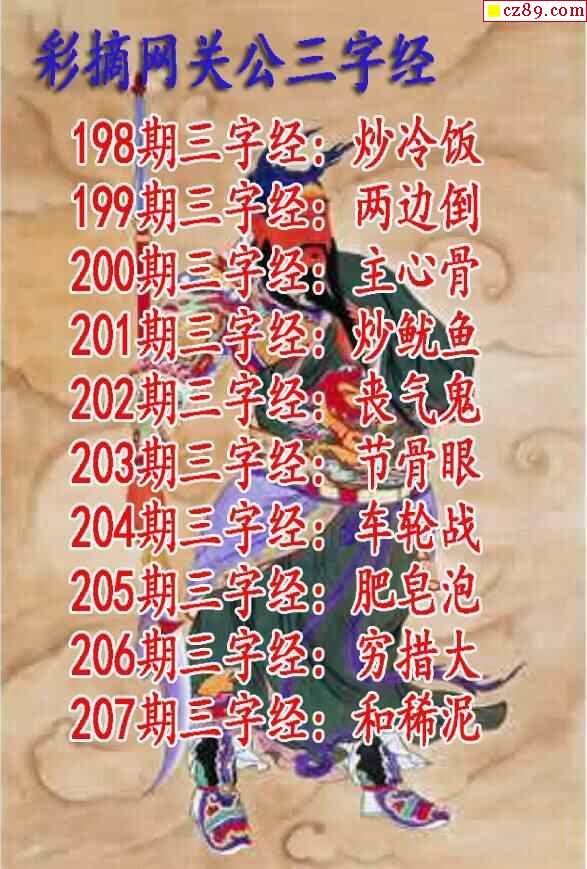 cz89.com
彩摘网关公三字经
198期三字经：炒冷饭
199期三字经：两边倒
200期三字经：主心骨
201期三字经：炒鱿鱼
202期三字经：丧气鬼
203期三字经：节骨眼
204期三字经：车轮战
205期三字经：肥皂泡
206期三字经：穷措大
207期三字经：和稀泥